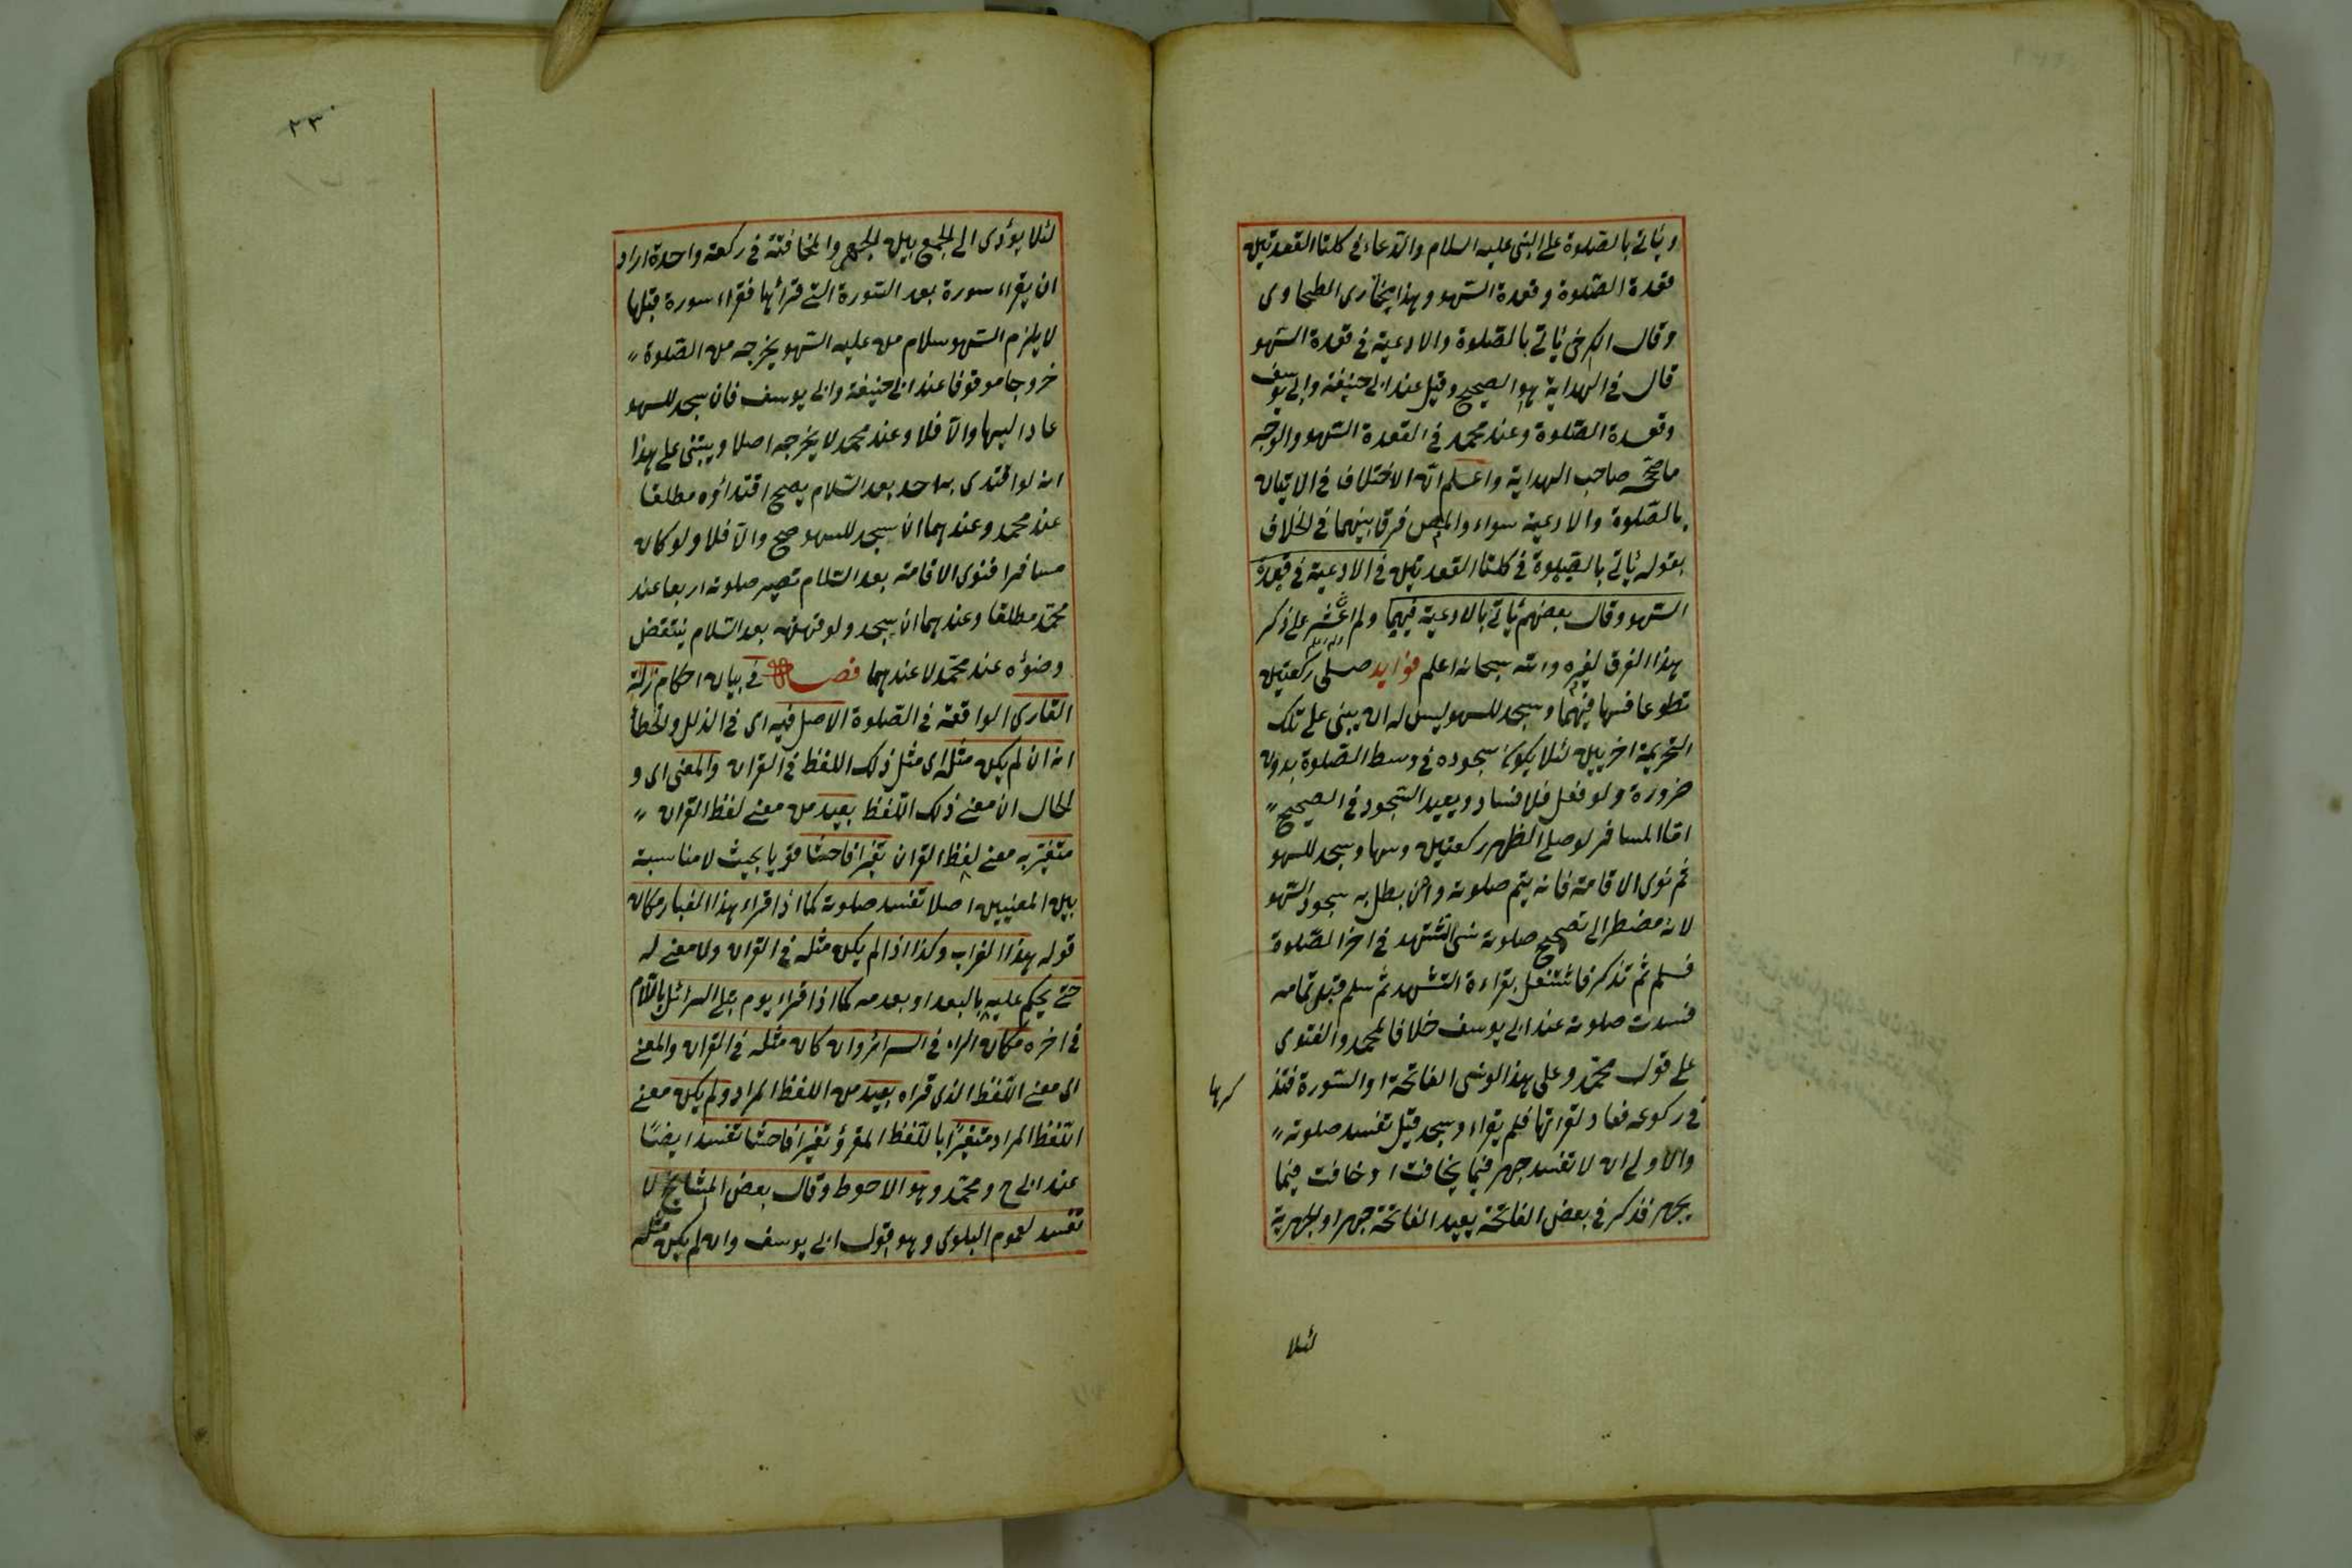 وياتي بالصلوة على النبي عليه السلام والدعاء في كلتا القعدتين
قعدة الصلوة وقعدة السهو وهذا مختار الطحاوي
وقال الكرخي ياتي بالصلوة والادعية في قعدة السهو
قال في الهداية هو الصحيح وقيل عند ابي حنيفة وابي يوسف
وقعدة الصلوة وعند محمد في القعدة السهو والوجه
ما صححه صاحب الهداية واعلم ان الاختلاف في الاتيان
بالصلوة والادعية سواء والمص فرق بينهما في الخلاف
بقوله ياتي بالصلوة في كلتا القعدتين في الادعية في قعدة
السهو وقال بعضهم ياتي بالادعية فيهما ولم اعثر على ذكر
هذا الفرق لغيره والله سبحانه اعلم فوايد صلى ركعتين
تطوعا فسها فيهما وسجد للسهو ليس له ان يبني على تلك
التحريمة اخريين لئلا يكون سجوده في وسط الصلوة بدون
ضرورة ولو فعل فلا فساد ويعيد السجود في الصحيح
اما المسافر لو صلى الظهر ركعتين وسها وسجد للسهو
ثم نوى الاقامة فانه يتم صلوته وان بطل به سجود السهو
لانه مضطر الى تصحيح صلوته نسي التشهد في اخر الصلوة
فسلم ثم تذكر فاشتغل بقراءة التشهد ثم سلم قبل تمامه
فسدت صلوته عند ابي يوسف خلافا لمحمد والفتوى
على قول محمد وعلى هذا لو نسي الفاتحة او السورة فتذ
كرها
في ركوعه فعاد لقراتها فلم يقراء وسجد قيل تفسد صلوته
والاولى ان لا تفسد جهر فيما يخافت او خافت فيما
يجهر فذكر في بعض الفاتحة يعيد الفاتحة جهرا والجهرية
لئلا
٢٣٠
لئلا يؤدى الى الجمع بين الجهر والمخافتة في ركعة واحدة اراد
ان يقراء سورة بعد السورة التي قرأها فقراء سورة قبلها
لا يلزم السهو سلام من عليه السهو يخرجه من الصلوة
خروجا موقوفا عند ابي حنيفة وابي يوسف فان سجد للسهو
عاد اليها والا فلا وعند محمد لا يخرجه اصلا ويبتنى على هذا
انه لو اقتدى به احد بعد السلام يصح اقتداؤه مطلقا
عند محمد وعندهما ان سجد للسهو صح والا فلا ولو كان
مسافرا فنوى الاقامة بعد السلام تصير صلوته اربعا عند
محمد مطلقا وعندهما ان سجد ولو قهقهه بعد السلام ينتقض
وضوؤه عند محمد لا عندهما فصل في بيان احكام زلة
القارى الواقعة في الصلوة الاصل فيه اى في الذلل والخطأ
انه ان لم يكن مثله اى مثل ذلك اللفظ في القران والمعنى اى و
الحال ان معنى ذلك اللفظ بعيد من معنى لفظ القران
متغير به معنى لفظ القران تغيرا فاحشا قويا بحيث لا مناسبة
بين المعنيين اصلا تفسد صلوته كما اذا قراء هذا الغبار مكان
قوله هذا الغراب وكذا اذا لم يكن مثله في القران ولا معنى له
حتى يحكم عليه بالبعد او بعدمه كما اذا قراء يوم تبلى السرائل باللام
في اخره مكان الراء في السرائر وان كان مثله في القران والمعنى
اى معنى اللفظ الذى قراه بعيد من اللفظ المراد ولم يكن معنى
اللفظ المراد متغيرا باللفظ المقرؤ تغيرا فاحشا تفسد ايضا
عند ابي ح ومحمد وهو الاحوط وقال بعض المشايخ لا
تفسد لعموم البلوى وهو قول ابي يوسف وان لم يكن مثله